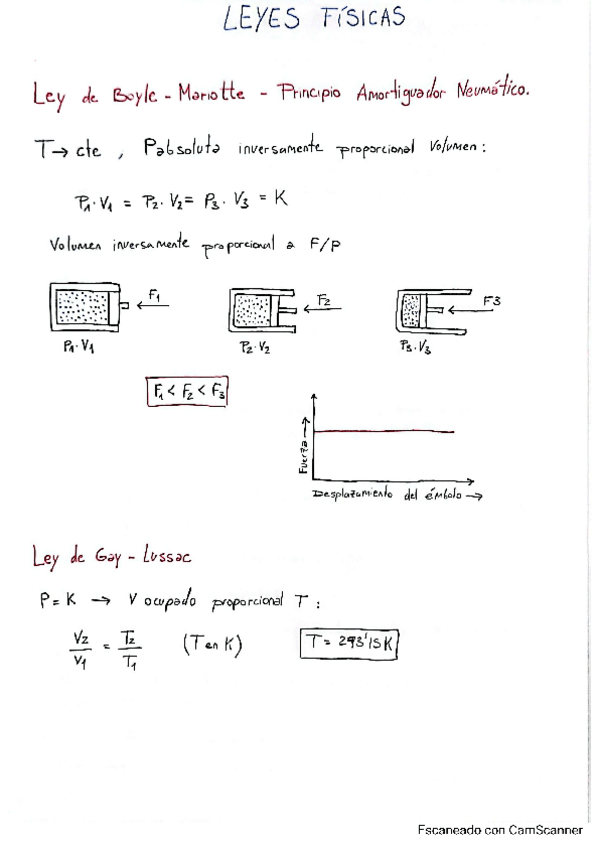 LEYES FÍSICAS
Ley de Boyle - Mariotte - Principio Amortiguador Neumático.
T → cte , Pabsoluta inversamente proporcional Volumen :
P1 · V1 = P2 · V2 = P3 · V3 = K
Volumen inversamente proporcional a F/P
F1 F2 F3
P1 · V1 P2 · V2 P3 · V3
F1 < F2 < F3
Fuerza →
Desplazamiento del émbolo →
Ley de Gay - Lussac
P = K → V ocupado proporcional T :
V2/V1 = T2/T1 (T en K) T = 293'15K
Escaneado con CamScanner